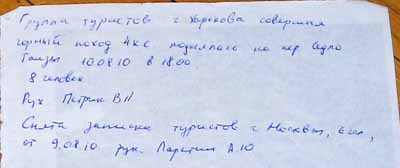 Группа туристов г. Харькова совершая
горный поход 4кс поднялась на пер Седло
Танзы 10.08.10 в 18.00
8 человек
Рук Петрик В Н
Снята записка туристов г. Москвы, 6 чел,
от 9.08.10 рук. А.Ю